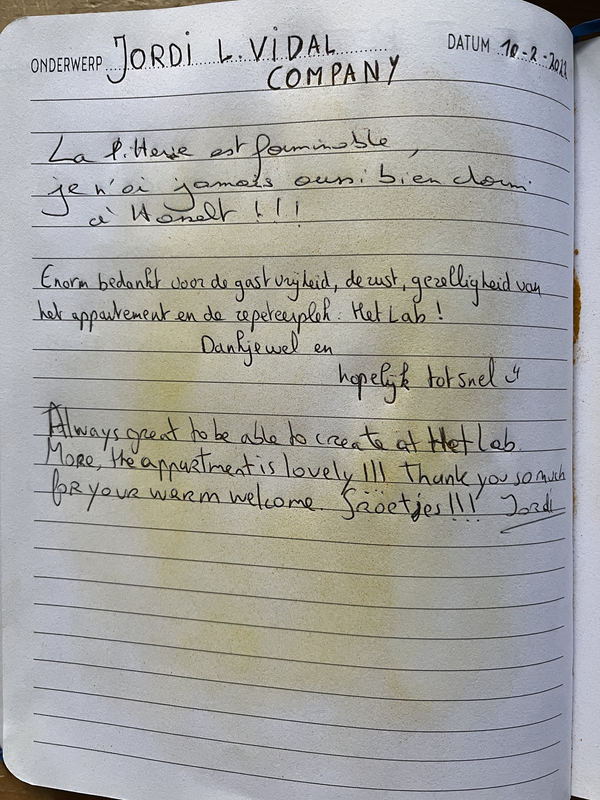 ONDERWERP JORDI L. VIDAL DATUM 10-2-2022
COMPANY
La P.tterie est forminable,
je n'ai jamais aussi bien dormi
à Hasselt !!!
Enorm bedankt voor de gastvrijheid, de rust, gezelligheid van
het appartement en de repeteerplek: Het Lab!
Dankjewel en
hopelijk tot snel
Always great to be able to create at Het Lab.
More, the appartment is lovely!!! Thank you so much
for your warm welcome. Groetjes!!! Jordi